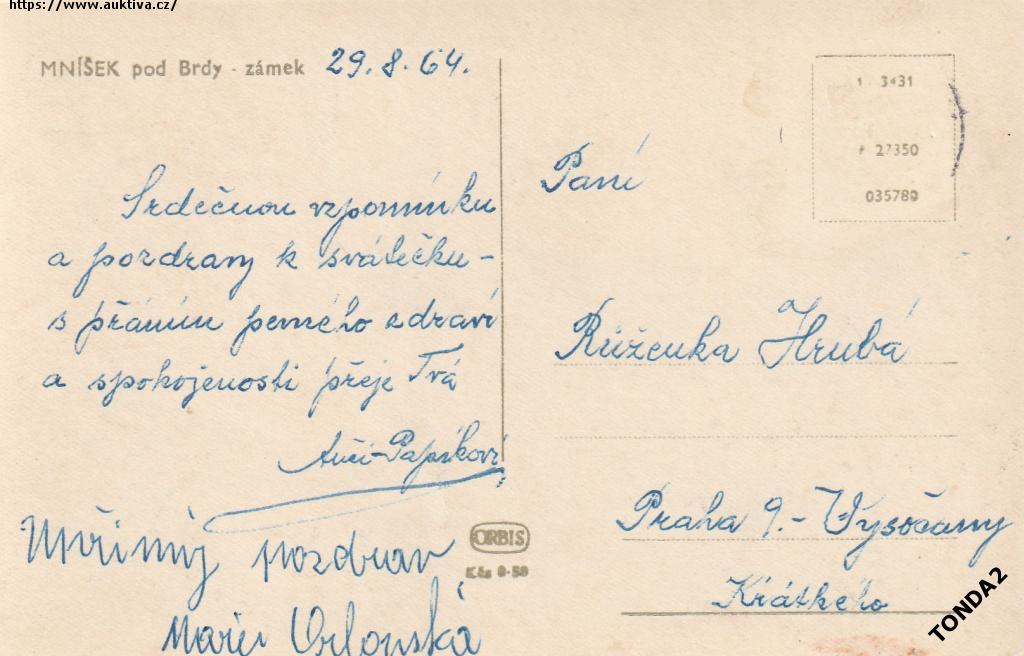 https://www.auktiva.cz/
MNÍŠEK pod Brdy - zámek 29.8.64.
Srdečnou vzpomínku
a pozdravy k svátečku -
s přáním pevného zdraví
a spokojenosti přeje Tvá
Papíkovi
Upřímný pozdrav
Marie Orlovská
ORBIS
Kčs 0·50
3431
27350
035789
Paní
Růženka Hrubá
Praha 9.- Vysočany
Krátkého
TONDA2